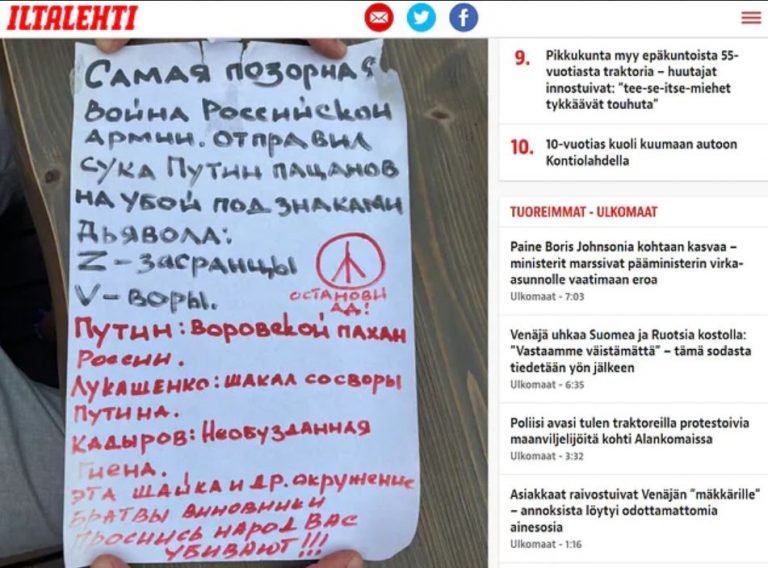 ILTALEHTI
САМАЯ ПОЗОРНАЯ
ВОЙНА РОССИЙСКОЙ
АРМИИ. ОТПРАВИЛ
СУКА ПУТИН ПАЦАНОВ
НА УБОЙ ПОД ЗНАКАМИ
ДЬЯВОЛА:
Z – ЗАСРАНЦЫ
V – ВОРЫ.
ОСТАНОВИ
АД!
ПУТИН: ВОРОВСКОЙ ПАХАН
РОССИИ.
ЛУКАШЕНКО: ШАКАЛ СО СВОРЫ
ПУТИНА.
КАДЫРОВ: НЕОБУЗДАННАЯ
ГИЕНА.
ЭТА ШАЙКА И ДР. ОКРУЖЕНИЕ
БРАТВЫ ВИНОВНИКИ
ПРОСНИСЬ НАРОД ВАС
УБИВАЮТ!!!
9. Pikkukunta myy epäkuntoista 55-
vuotiasta traktoria – huutajat
innostuivat: "tee-se-itse-miehet
tykkäävät touhuta"
10. 10-vuotias kuoli kuumaan autoon
Kontiolahdella
TUOREIMMAT - ULKOMAAT
Paine Boris Johnsonia kohtaan kasvaa –
ministerit marssivat pääministerin virka-
asunnolle vaatimaan eroa
Ulkomaat - 7:03
Venäjä uhkaa Suomea ja Ruotsia kostolla:
"Vastaamme väistämättä" – tämä sodasta
tiedetään yön jälkeen
Ulkomaat - 6:35
Poliisi avasi tulen traktoreilla protestoivia
maanviljelijöitä kohti Alankomaissa
Ulkomaat - 3:32
Asiakkaat raivostuivat Venäjän "mäkkärille"
– annoksista löytyi odottamattomia
ainesosia
Ulkomaat - 1:16